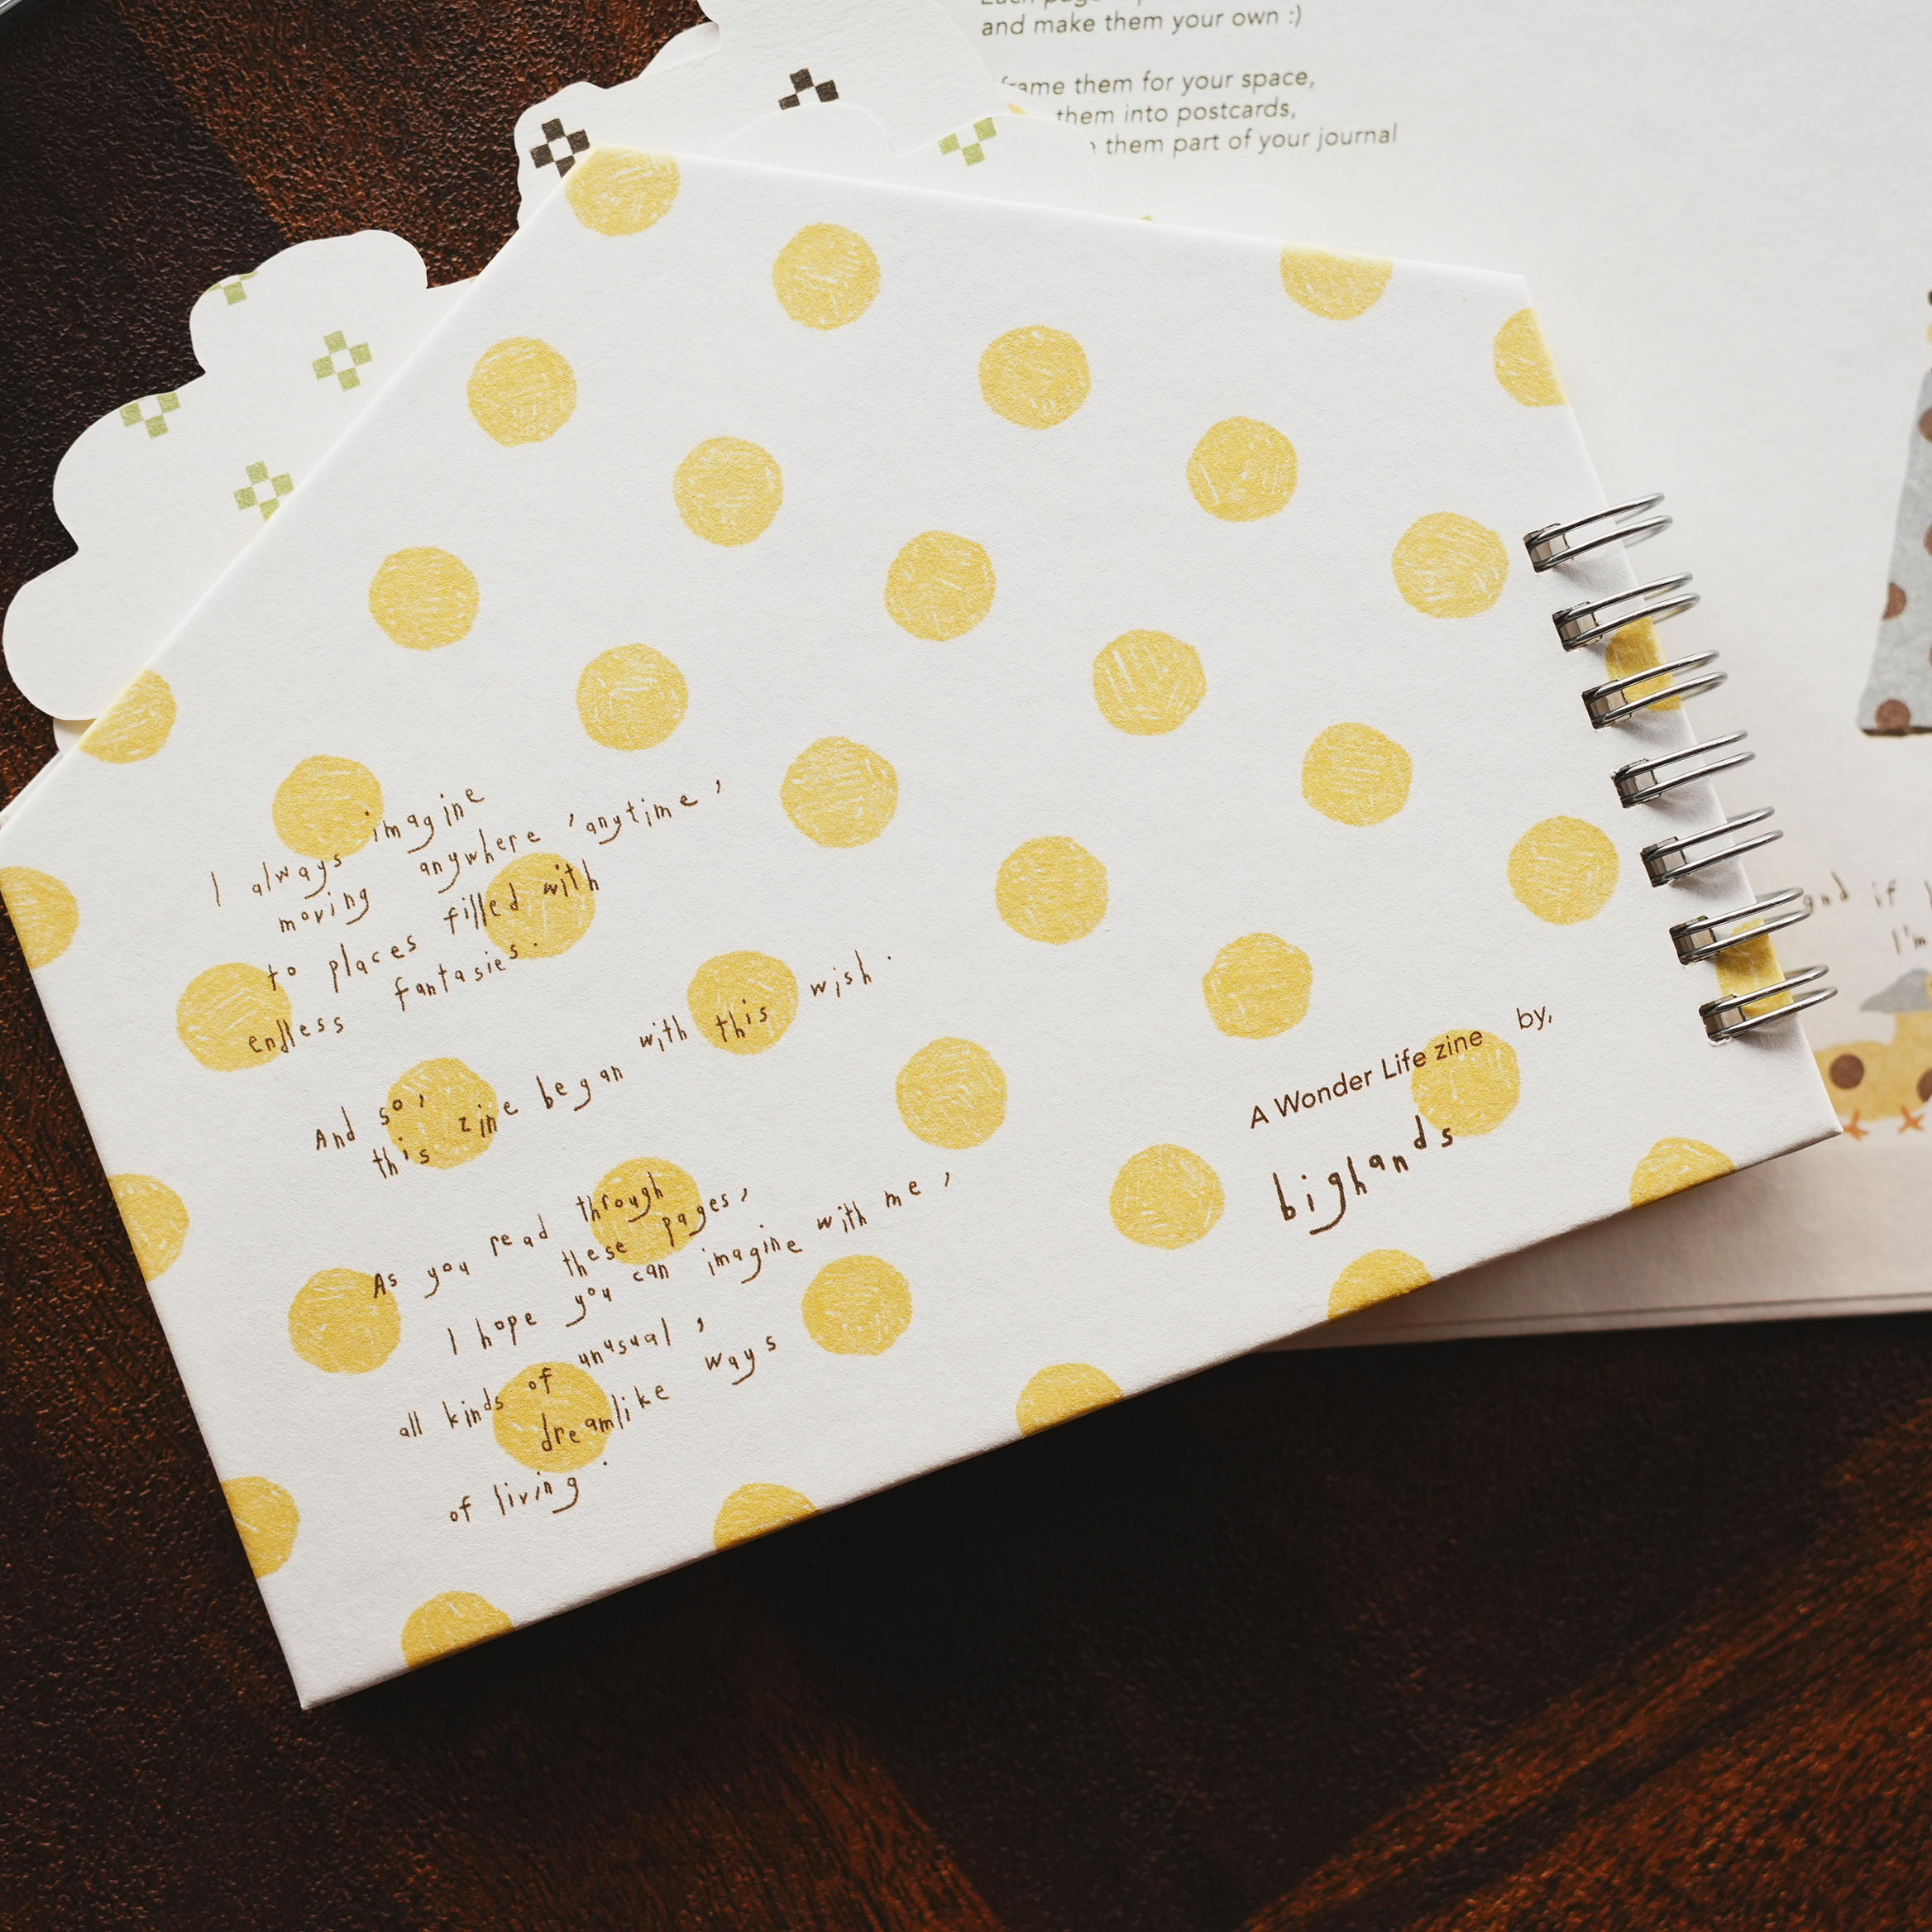 and make them your own :)
frame them for your space,
them into postcards,
them part of your journal
I always imagine
moving anywhere, anytime,
to places filled with
endless fantasies.
And so,
this zine began with this wish.
As you read through
these pages,
I hope you can imagine with me,
all kinds of unusual,
dreamlike ways
of living.
A Wonder Life zine by,
bighands
and if
I'm